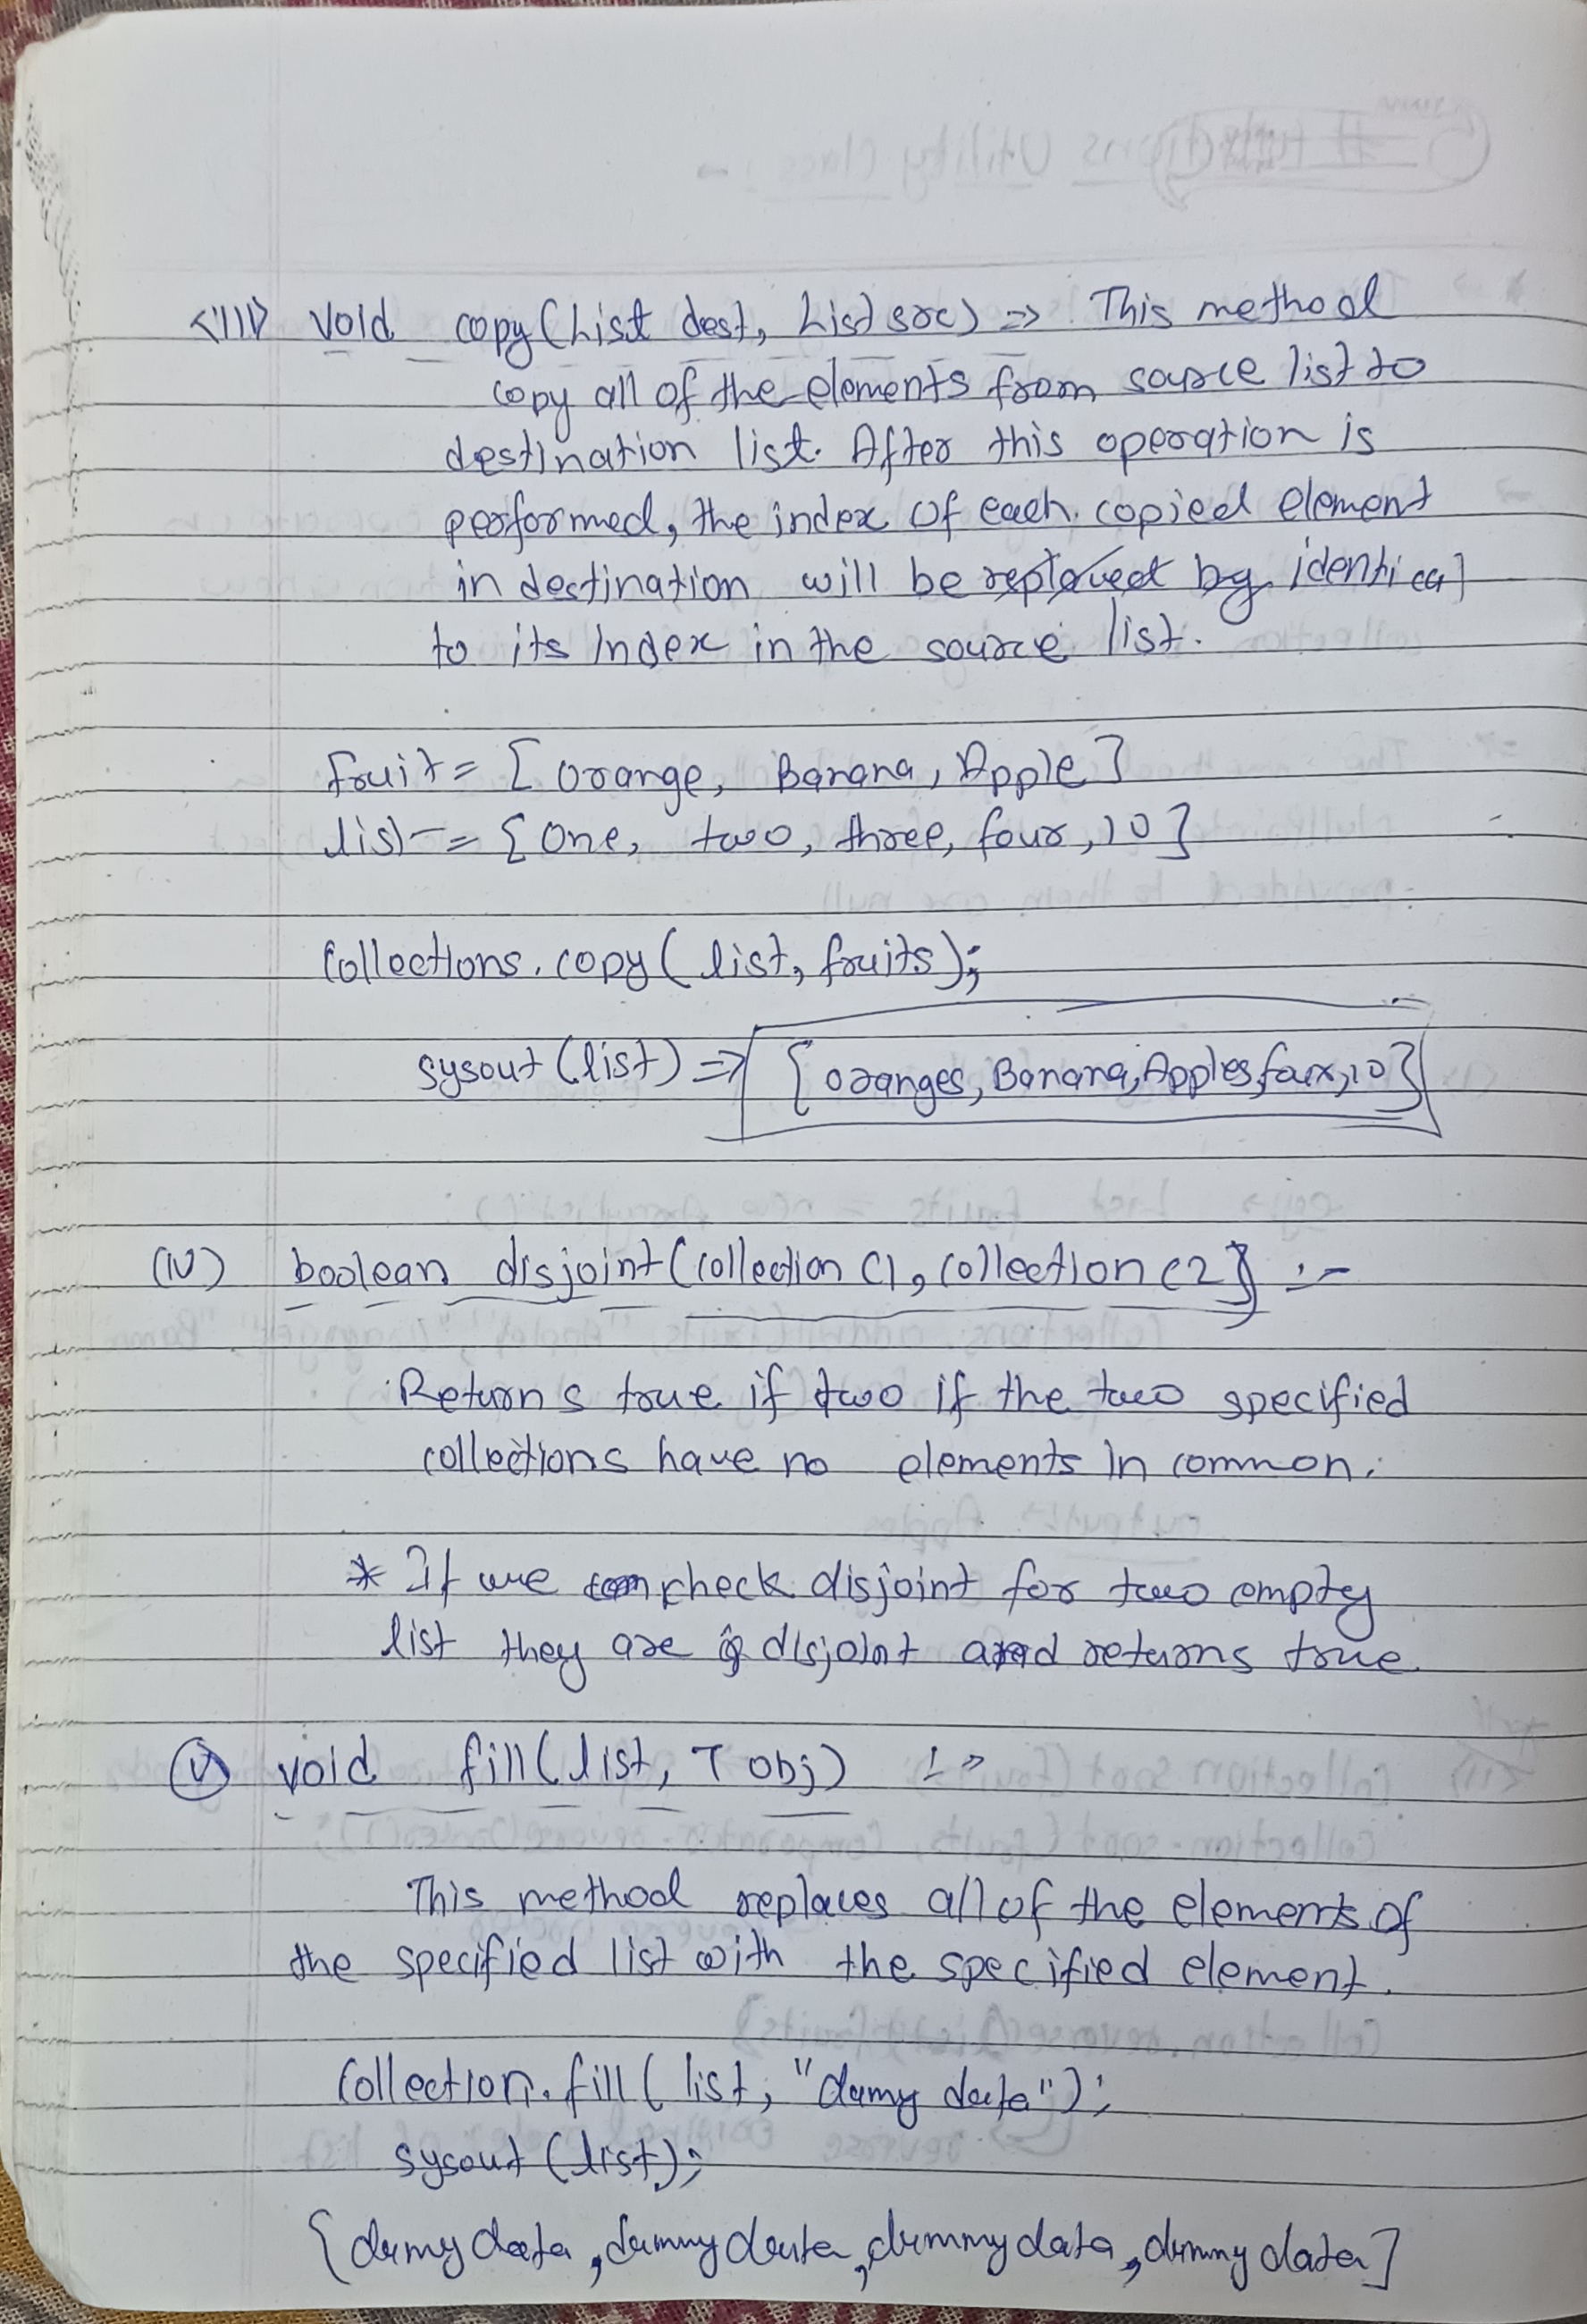 <III> Void copy(List dest, List src) => This method
copy all of the elements from source list to
destination list. After this operation is
performed, the index of each copied element
in destination will be replaced by identical
to its Index in the source list.
fruit = [orange, Banana, Apple]
list = {One, two, three, four, 10}
Collections.copy(list, fruits);
sysout(list) => {oranges, Banana, Apples, four, 10}
(IV) boolean disjoint(collection C1, collection C2) :-
Returns true if two if the two specified
collections have no elements in common.
* If we check disjoint for two empty
list they are disjoint and returns true.
(V) void fill(list, T obj) :->
This method replaces all of the elements of
the specified list with the specified element.
Collection.fill(list, "dumy data");
sysout(list);
{dumy data, dummy data, dummy data, dummy data]